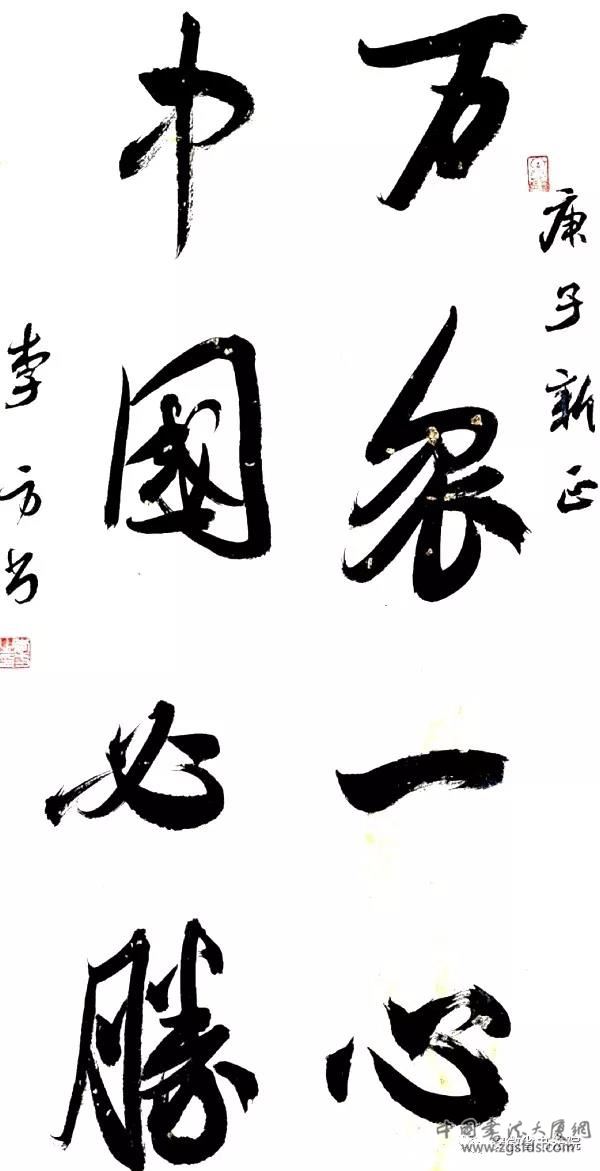 庚子新正
万眾一心
中國必勝
李方书
中国书法大厦網
www.zgsfds.com